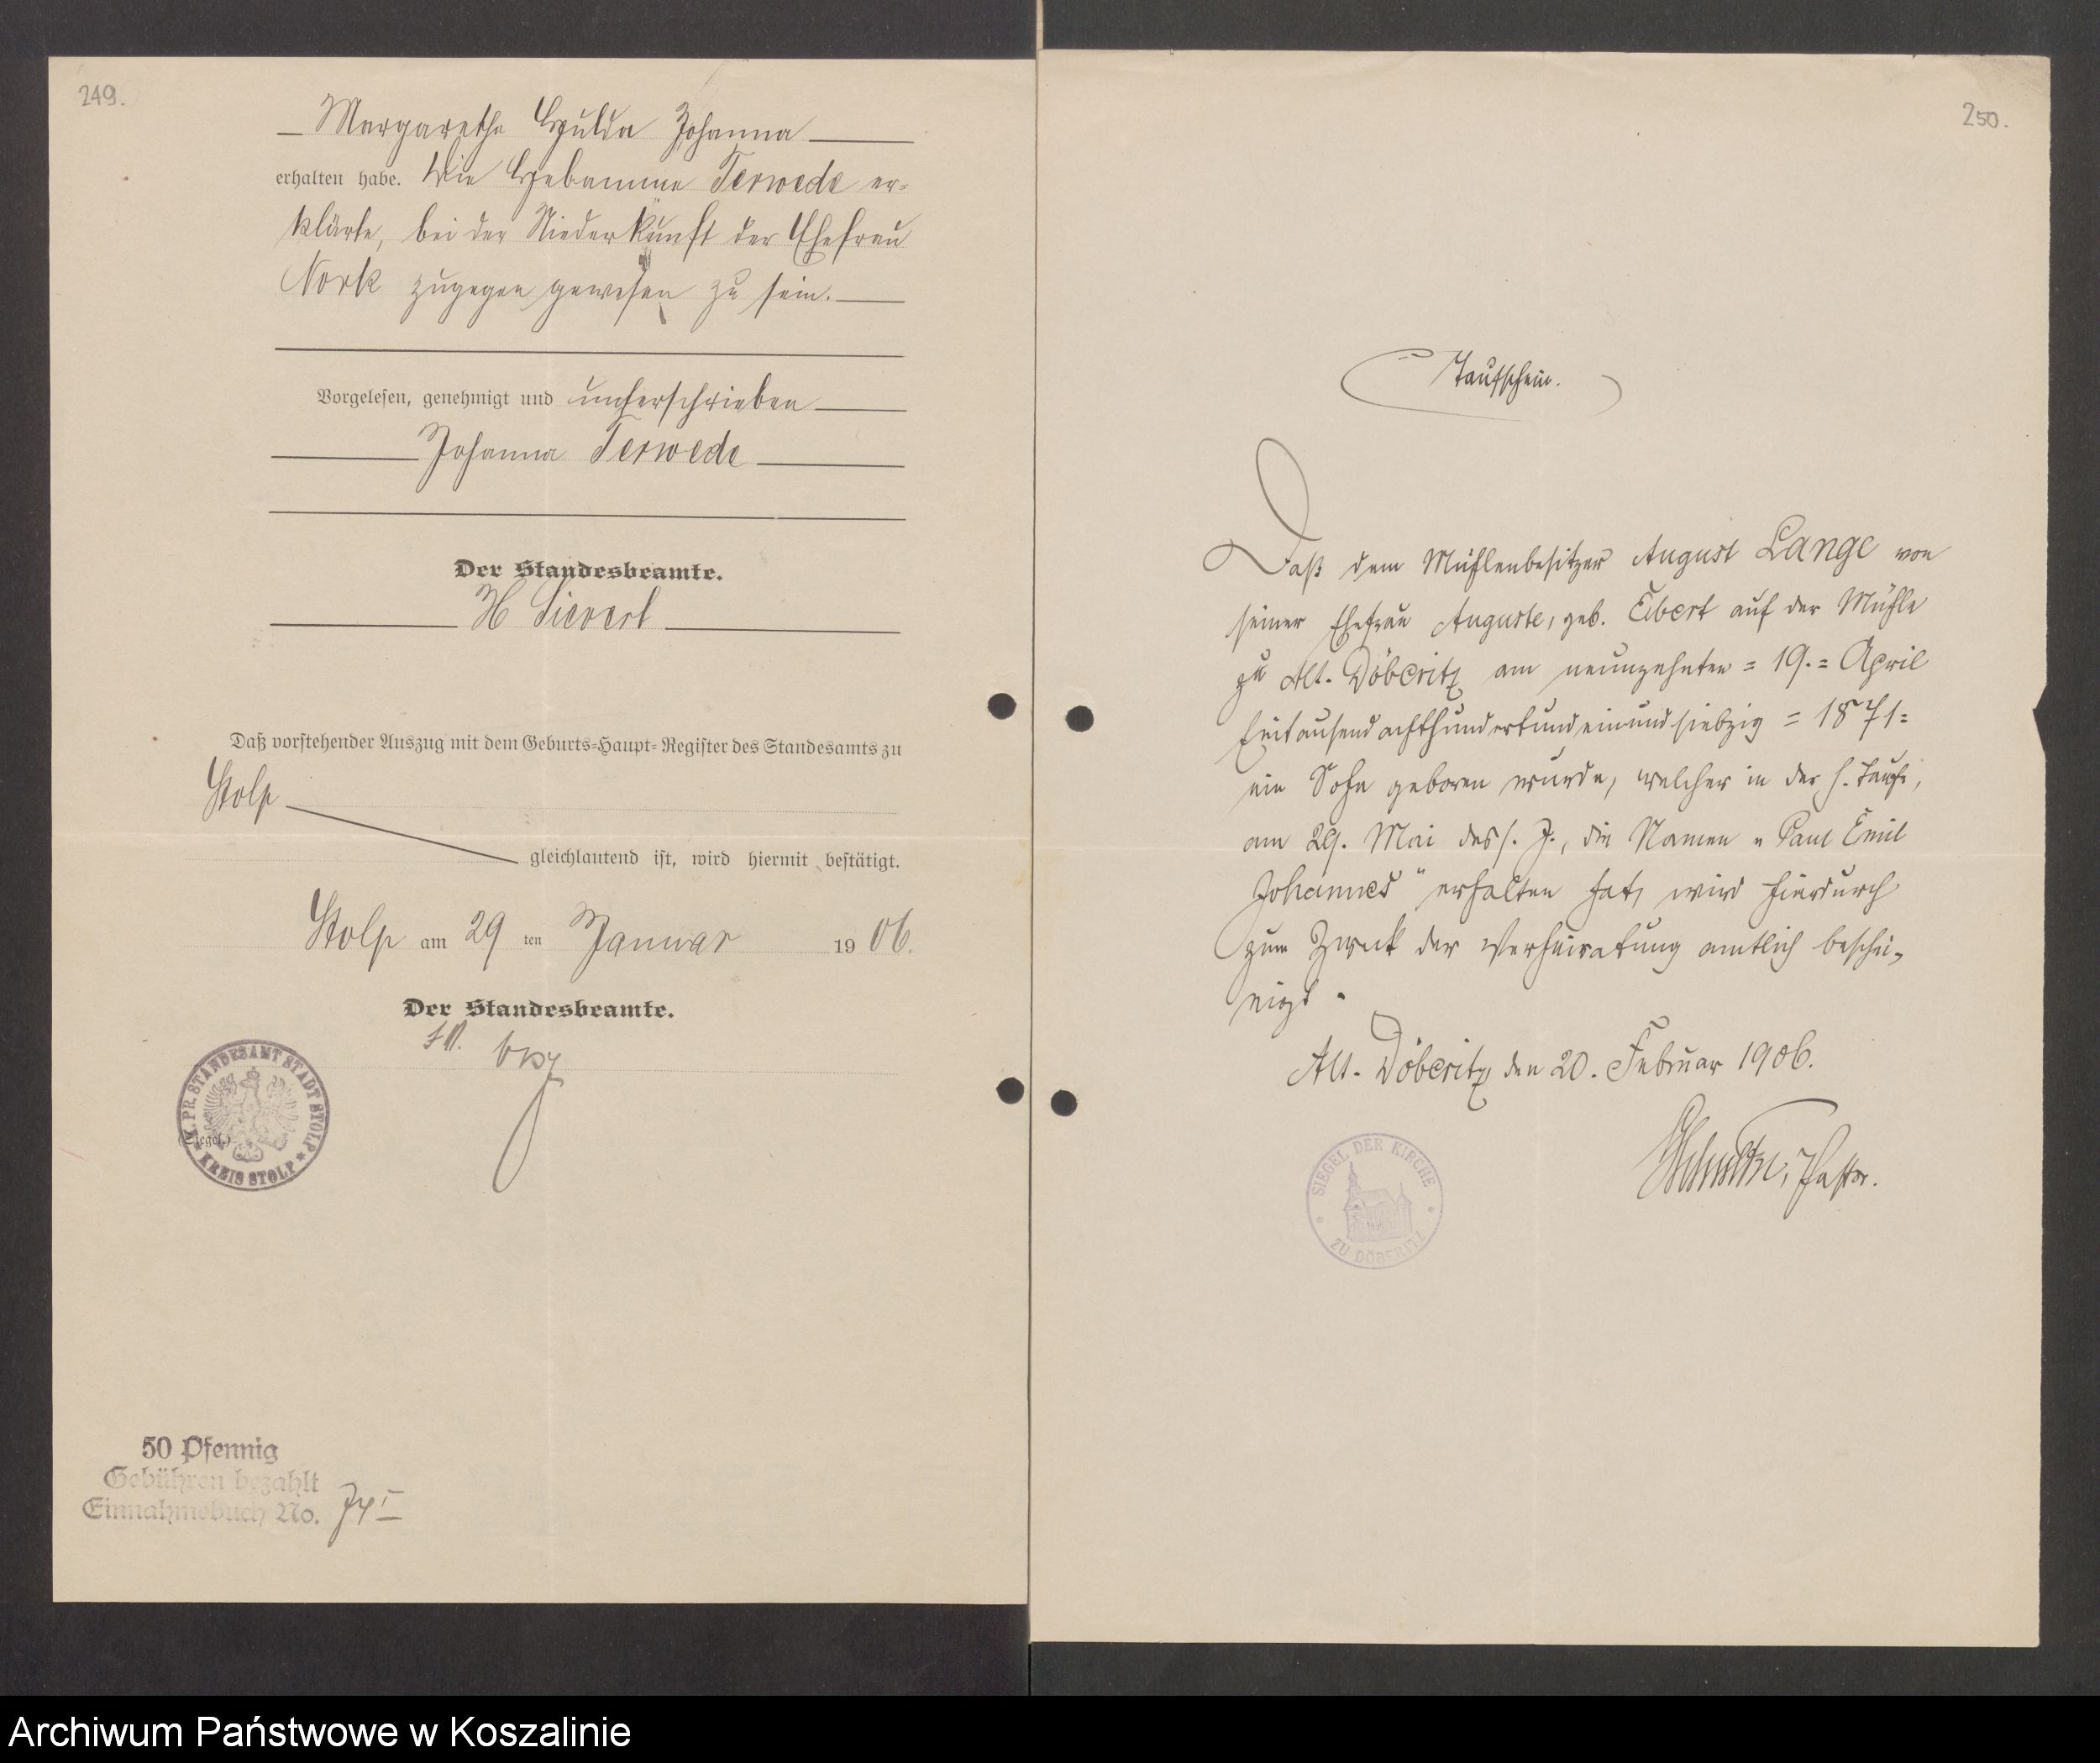 249.
Margarethe Hulda Johanna
erhalten habe. Die Hebamme Terwede er-
klärte, bei der Niederkunft der Ehefrau
Nork zugegen gewesen zu sein.
Vorgelesen, genehmigt und unterschrieben
Johanna Terwede
Der Standesbeamte.
H Sievert
Daß vorstehender Auszug mit dem Geburts-Haupt-Register des Standesamts zu
Stolp
gleichlautend ist, wird hiermit bestätigt.
Stolp am 29 ten Januar 1906.
Der Standesbeamte.
K. PR. STANDESAMT STADT STOLP
KREIS STOLP
(Siegel.)
50 Pfennig
Gebühren bezahlt
Einnahmebuch No.
250.
Taufschein.
Daß dem Mühlenbesitzer August Lange von
seiner Ehefrau Auguste, geb. Eibert auf der Mühle
zu Alt-Döberitz am neunzehnten = 19. = April
Eintausendachthundertundeinundsiebzig = 1871 =
ein Sohn geboren wurde, welcher in der h. Taufe,
am 29. Mai des s. J., die Namen "Paul Emil
Johannes" erhalten hat, wird hierdurch
zum Zweck der Verheiratung amtlich beschei-
nigt.
Alt-Döberitz den 20. Februar 1906.
Pastor.
SIEGEL DER KIRCHE
ZU DÖBERITZ
Archiwum Państwowe w Koszalinie